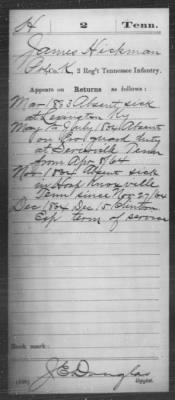 H 2 Tenn.
James Hickman
Co. K, 2 Reg't Tennessee Infantry.
Appears on Returns as follows:
Mar 1863 Absent sick
at Lexington Ky
May to July 1864 Absent
guard duty
at Tenn
from Apr 8/64
Nov 1864 Absent sick
in Hosp Knoxville
Tenn since Nov 27/64
Dec 1864 Dec 15 Clinton
Exp term of service
Book mark:
J E Douglas
Copyist.